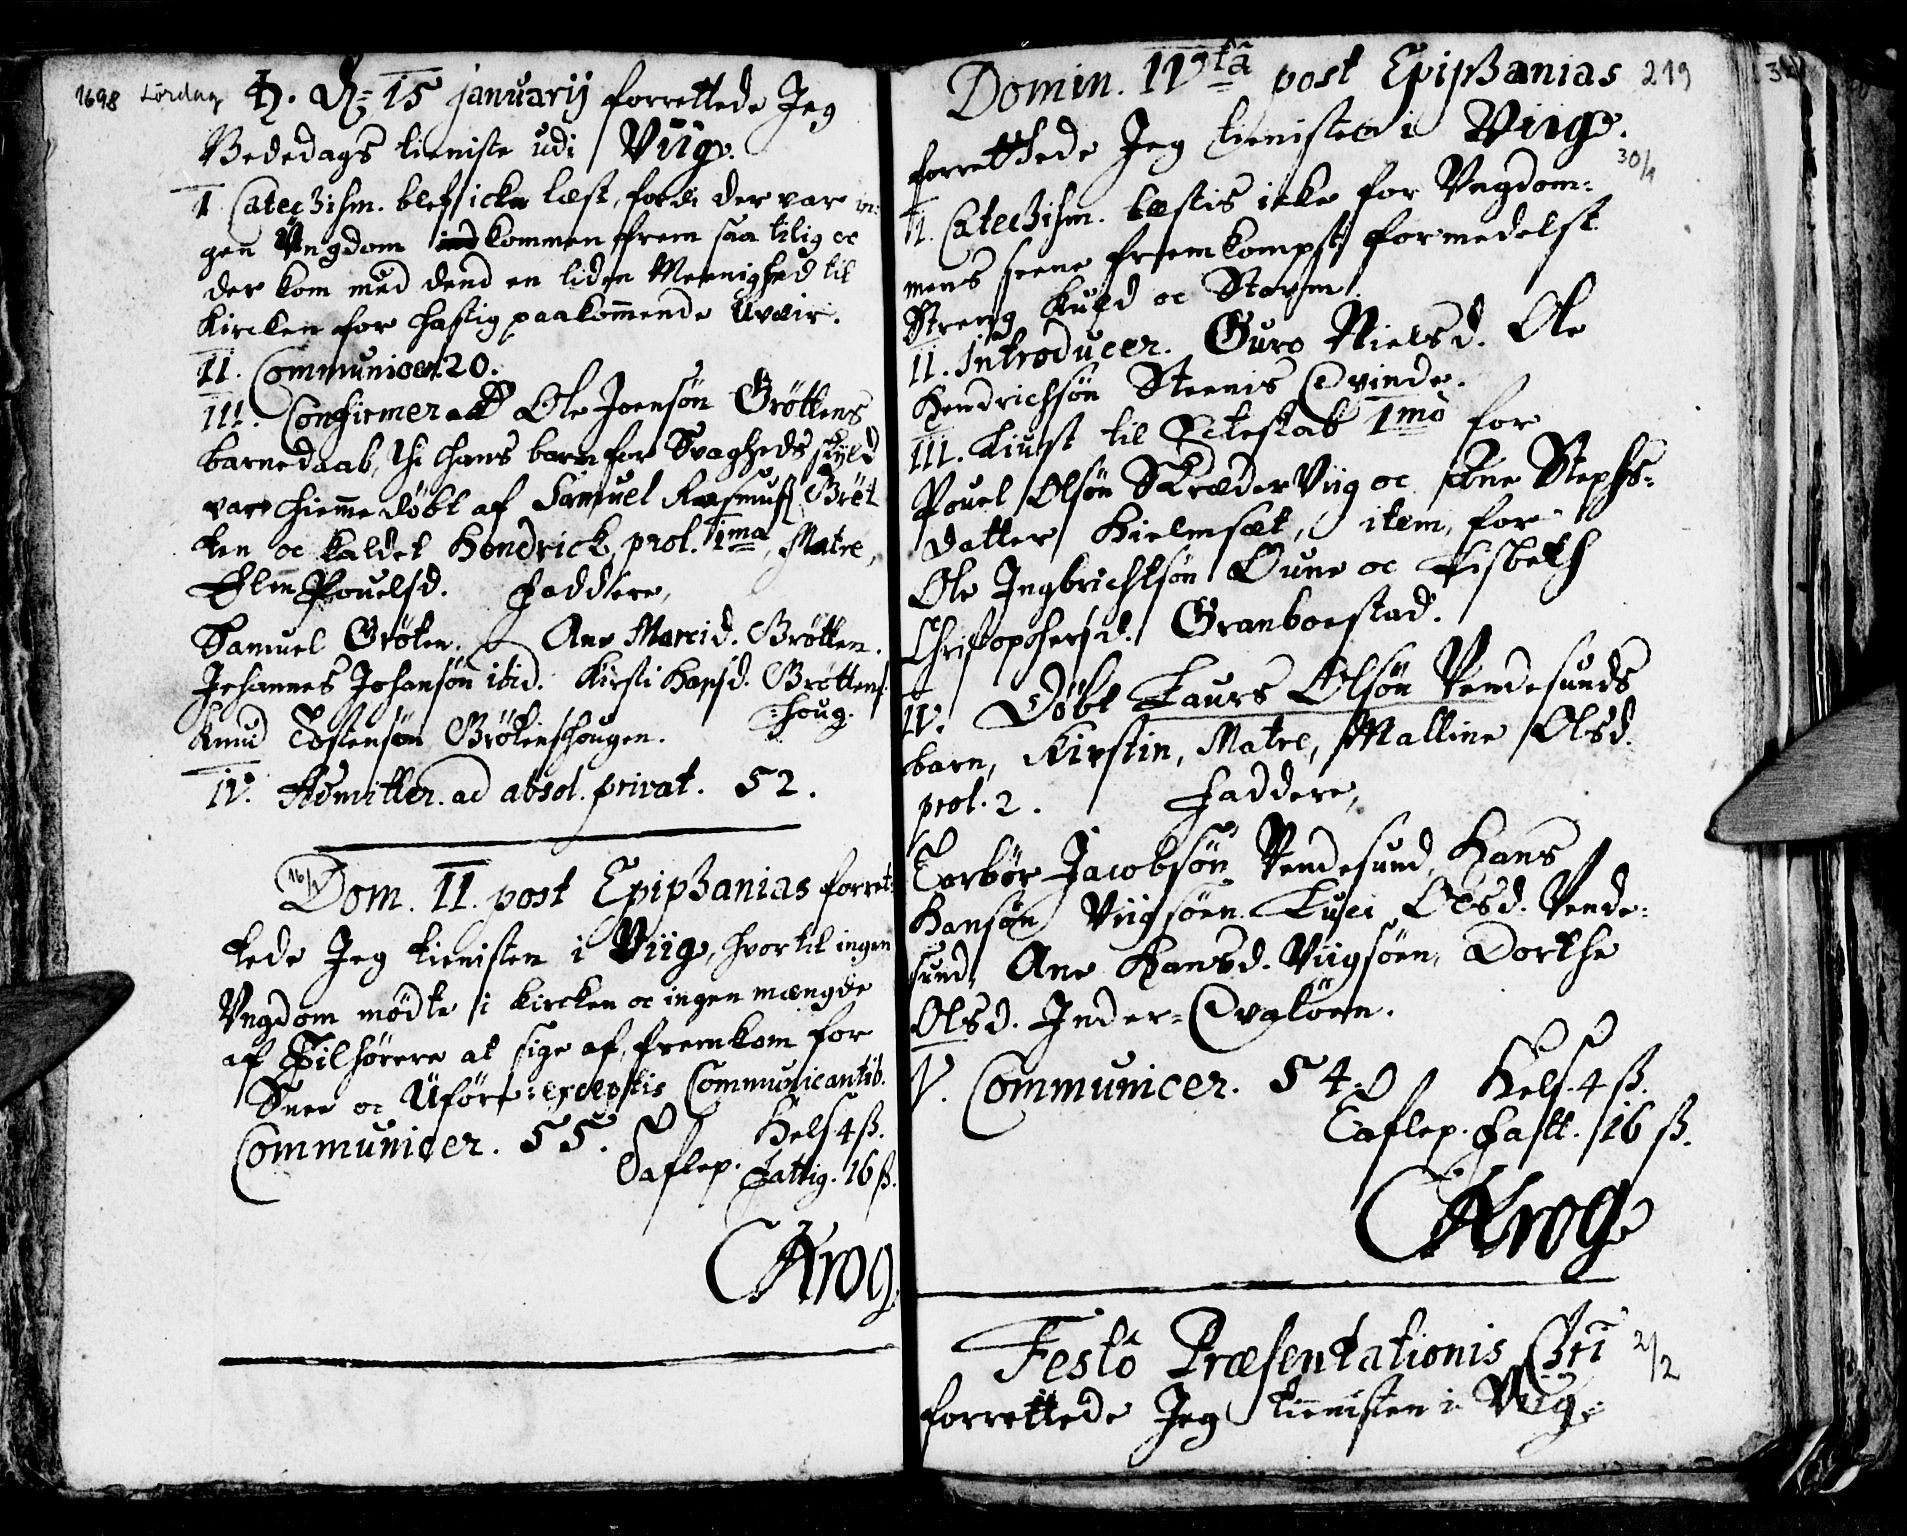 1698 Lördag ♄. D: 15 januarij forrettede Jeg
Bededags tieniste udi Viig.
I Catechism. blef icke læst, fordi der var in:
gen Ungdom kommen frem saa tilig oc
der kom med dend en liden Meenighed til
Kircken for hastig paakom̄ende Uveir.
II. Communicer. 20.
III. Confirmered Ole Joensön Bröttens
barnedaab, thi hans barn for Svagheds skyld
var hiem̄edöbt af Samuel Rasmuss. Bröt
ten oc kaldet Hendrick, prol. 1ma, Matre,
Elin Povelsd. Faddere,
Samuel Bröten. Ane Marcid. Brötten.
Johannes Johansön ibid. Kirsti Hansd. Bröttens
:houg.
Knud Tostensön Brötenshougen.
IV. Admitter. ad absol. privat. 52.
16/1
Dom. II. post Epiphanias forret:
tede Jeg tienisten i Viig, hvor til ingen
Ungdom mödte i kircken oc ingen mængde
af Tilhörere at sige af, fremkom for
Snee oc Uföre: exceptis Communicantib.
Communicer. 55. Hels 4 ß.
Taflep. Fattig. 16 ß.
CKrog.
Domin. IVta post Epiphanias 219
forrettede Jeg tienisten i Viig.
30/1
I. Catechism. læstis icke for Ungdom:
mens seene fremkompst formedelst
Streng Kuld oc Storm.
II. Introducer. Guro Nielsd. Ole
Hendrichsön Steenis Qvinde.
III. Liust til Ectestab 1mo for
Povel Olsön Skræder Viig oc Ane Stephs:
datter Hielmset, item, for
Ole Ingbrichtsön Oune oc Lisbeth
Christophersd. Granboestad.
IV. Döbt Laurs Olsön Vendesunds
barn, Kirstin, Matre, Malline Olsd.
prol. 2. Faddere,
Torbör Jacobsön Vendesund, Hans
Hansön Viigsöen. Luci Olsd. Vende:
sund, Ane Hansd. Viigsöen, Dorthe
Olsd. Inder-Qvalöen.
V. Communicer. 54. Hels. 4 ß.
Taflep. Fatt. 16 ß.
CKrog
Festo Præsentationis Chri 2/2
forrettede Jeg tienisten i Viig.